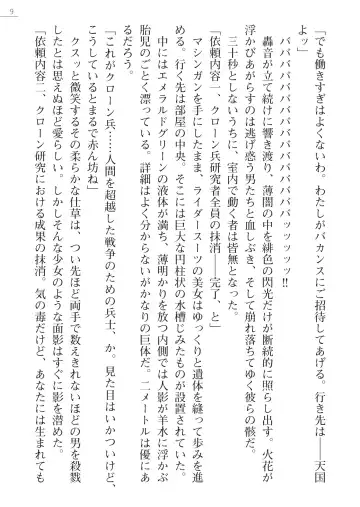 9
「でも働きすぎはよくないわ。わたしがバカンスにご招待してあげる。行き先は――天国
よッ」
バババババババババババババババババッッッッ!!
轟音が立て続けに響き渡り、薄闇の中を緋色の閃光だけが断続的に照らし出す。火花が
浮かびあがらすのは逃げ惑う男たちと血しぶき、そして崩れ落ちてゆく彼らの骸だ。
三十秒としないうちに、室内で動く者は皆無となった。
「依頼内容一、クローン兵研究者全員の抹消――完了、と」
マシンガンを手にしたまま、ライダースーツの美女はゆっくりと遺体を縫って歩みを進
める。行く先は部屋の中央。そこには巨大な円柱状の水槽が設置されていた。
中にはエメラルドグリーンの液体が満ち、薄明かりを放つ内側では人影が羊水に浮かぶ
胎児のごとく漂っている。詳細はよく分からないがかなりの巨体だ。二メートルは優にあ
るだろう。
「これがクローン兵……人間を超越した戦争のための兵士、か。見た目はいかついけど、
こうしているとまるで赤ん坊ね」
クスッと微笑するその柔らかな仕草は、つい先ほど両手で数えきれないほどの男を殺戮
したとは思えぬほど愛らしい。しかしそんな少女のような面影はすぐに影を潜めた。
「依頼内容二、クローン研究における成果の抹消。気の毒だけど、あなたには生まれても